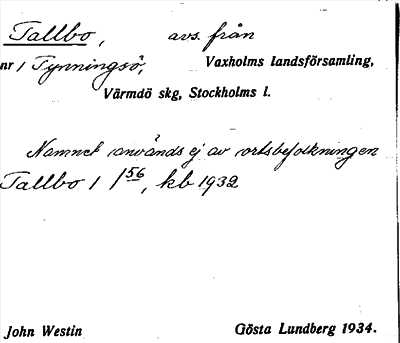 Tallbo, avs. från
nr 1 Tynningsö, Vaxholms landsförsamling,
Värmdö skg, Stockholms l.
Namnet används ej av ortsbefolkningen
Tallbo 1 1 56, kb 1932
John Westin Gösta Lundberg 1934.